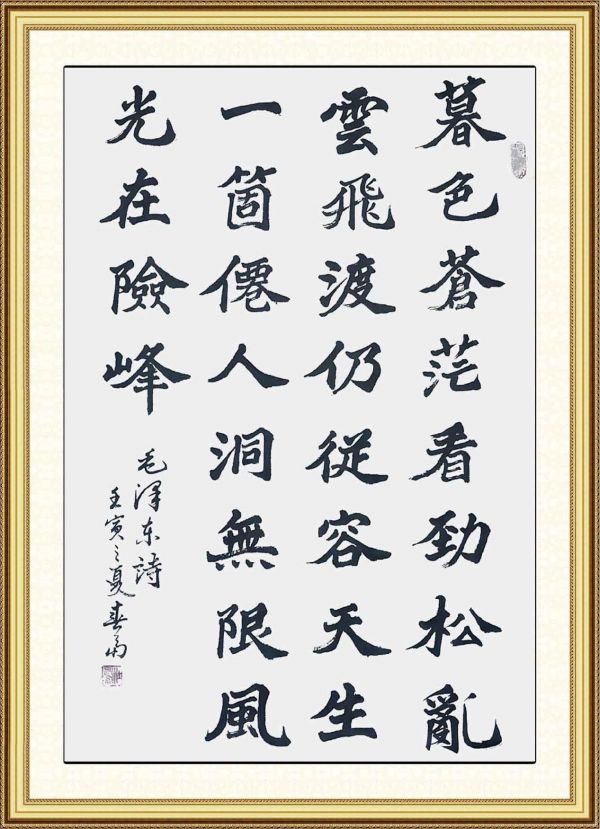 暮色蒼茫看勁松亂
雲飛渡仍從容天生
一箇僊人洞無限風
光在險峰
毛澤东詩
壬寅之夏春雨